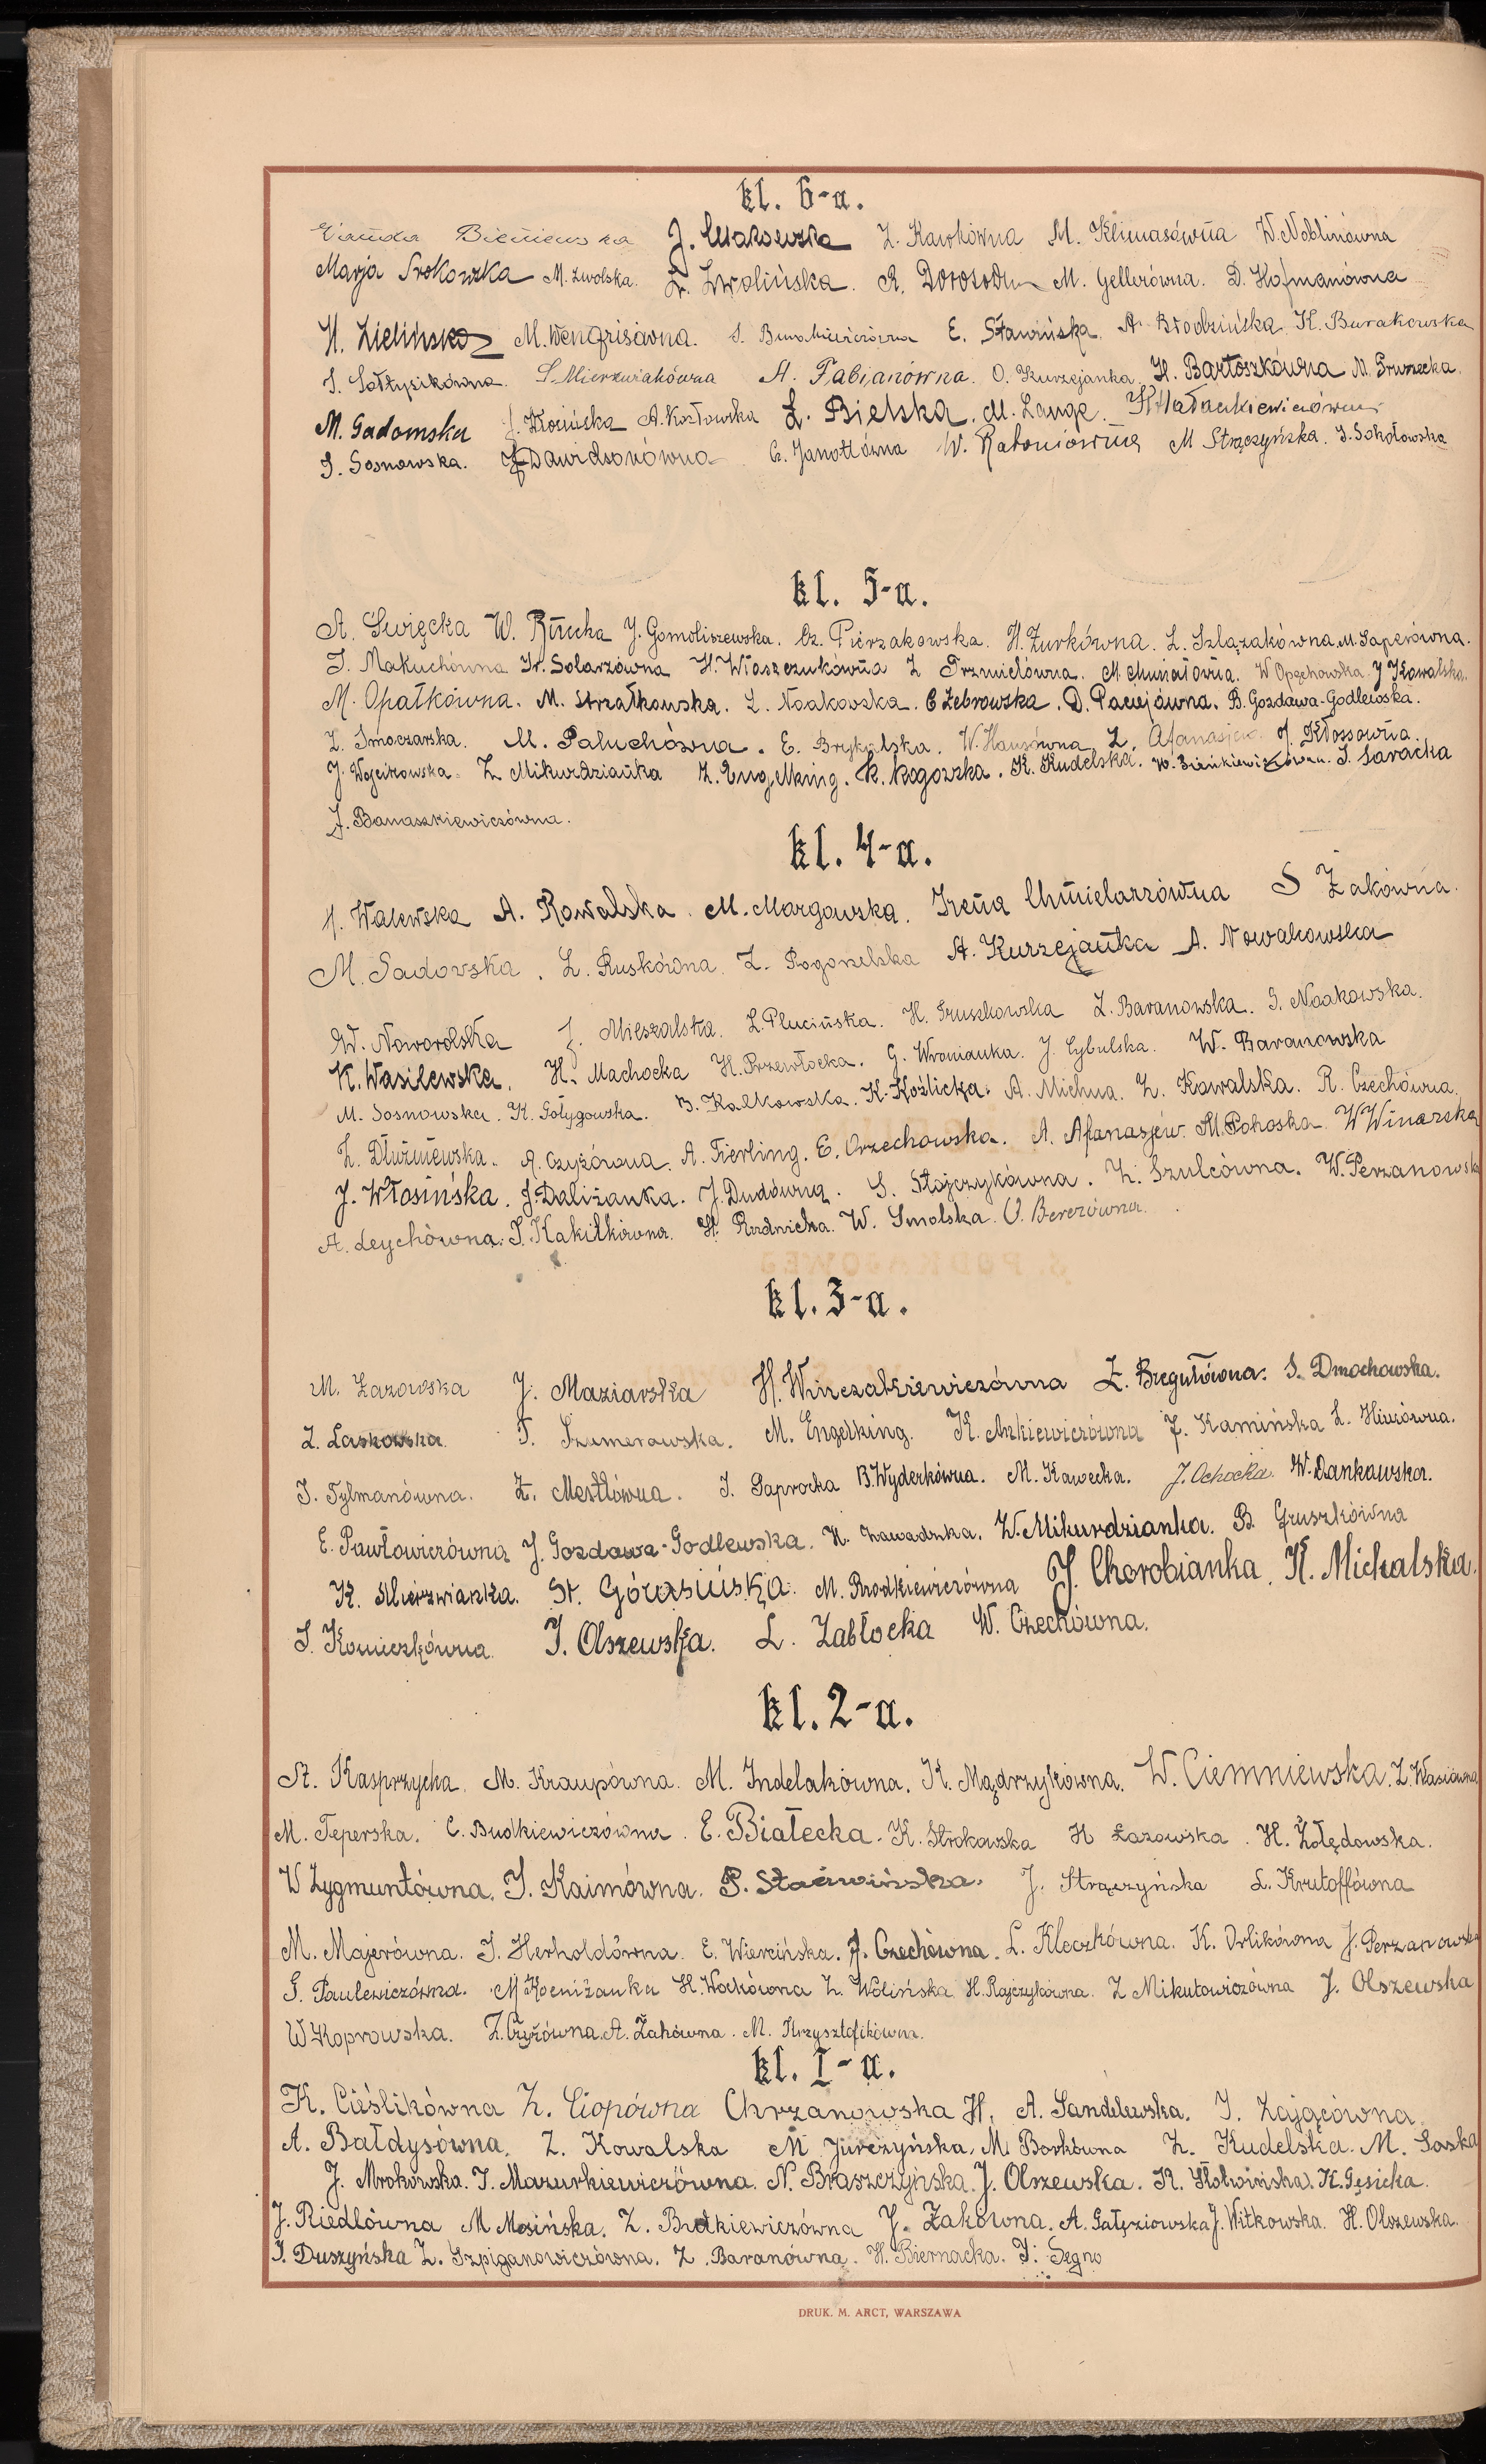 kl. 6-a.
Wanda Bieniewska J. Makowska Z. Kawkówna M. Klimasówna W. Noblinówna
Marja Srokowzka M. Zwolska. Z. Zwolińska. A. M. Gellerówna. D. Hofmanówna
H. Zielińska M. Wengrisówna. S. E. Sławińska. A. Błodzińska K. Burakowska
S. Sołtysikówna. S. Mierzwiakówna A. Fabianówna. O. Kurzejanka H. Bartoszkówna N. Gruzecka.
M. Gadomska J. A. Kozłowska Z. Bielska. M. Lange.
S. Sosnowska. J. Dawidsonówna E. Janottówna W. Ratoniówna M Strączyńska. J. Sokołowska
kl. 5-a.
A. Święcka W. J. Gomoliszewska. Cz. Pierzakowska. H. Żurkówna. L. Szlązakówna M. Saperówna.
J. Makuchówna Ir. Solarzówna H. Włoszczukówna Z Trzmielówna. M. W Opęchowska J Kowalska.
M. Opałkówna. M. Strzałkowska. Z. Noakowska. C Żebrowska. D. Pacujówna. B. Gozdawa-Godlewska.
Z. Smoczarska. M. Paluchówna. E. Brykalska. W. Hanzówna Z. Afanasjew J. Kłossowna.
J. Wojcikowska. Z. Mikurdzianka Z. Engelking. K. Rogozka. K. Kudelska. W. Sieńkiewiczówna. J. Saracka
J. Banaszkiewiczówna.
kl. 4-a.
H. Walewska A. Kowalska. M. Margowzka. Irena Chmielarzówna S Żakówna.
M. Sadowska. L. Ruskówna. Z. Pogorzelska A. Kurzejanka A. Nowakowska
W. Noworolska J. Mieszalska. L. Plucińska. H. Gruszkowska Z. Baranowska. J. Noakowska.
K. Wasilewska. H. Machocka H. Przewłocka. G. Wronianka. J. Cybulska. W. Baranowska
M. Sosnowska. K. Gołygowska. B. Kalkowska. K. Koźlicka. A. Michna. Z. Kowalska. R. Czechówna.
Z. Dłużniewska. A. Czyżówna. A. Fierling. E. Orzechowska. A. Afanasjew. M. Pohoska. W Winarska
J. Włosińska. J. Daliżanka. J. Dudówna. S. Stojczykówna. Z. Szulcówna. W. Perzanowsk
A. Leychówna. J. Kakiłkówna. H. Radnicka. W. Smolska. O. Berezówna.
kl. 3-a.
M. Łazowska J. Maziarska H. Winczakiewiczówna Z. Bregułówna. S. Dmochowska.
Z. Laskowska T. Szumerawska. M. Engelking. K. Ankiewiczówna J. Kamińska L. Hinzówna.
J. Tylmanówna. Z. Mertlówna. J. Saprocka B. Wyderkówna. M. Kawecka. J. Ochocka. W. Dankowska.
E. Pawłowiczówna J. Gozdawa-Godlewska. H. Zawadzka. W. Mikurdzianka. B Gruszkówna
K. Mierzwianka. St. Górasińska. M. Rodkiewiczówna J. Chorobianka. K. Michalska.
S. Komieczkówna. J. Olszewska. L. Zabłocka W. Czechówna.
kl. 2-a.
St. Kasprzycka. M. Kraupówna. M. Indelakówna. K. Mądrzykówna. W. Ciemniewska. Z. Wasiówna
M. Teperska. C. Budkiewiczówna. E. Białecka. K. Strokowska H Łazowska. H. Żołędowska.
W Zygmuntówna. J. Kaimówna. P. Stawińska. J. Strączyńska L. Krutoffówna
M. Majerówna. J. Herholdówna. E. Wiercińska. J. Czechówna. L. Kleczkówna. K. Orlikówna J. Perzanowska
S. Paulewiczówna. M Koeniżanka H. Wockówna Z. Wolińska. H. Rajczykówna. Z Mikutowiczówna J. Olszewska
W Koprowska. Z. Czyżówna. A. Żakówna. M. Krzysztofikówna.
kl. I-a.
K. Cieślikówna Z. Ciopówna Chrzanowska H. A. Sandelewska. J. Zającówna.
A. Bałdysówna. Z. Kowalska M Jurczyńska. M. Borkówna Z. Kudelska. M. Saska
J. Mrokowska. J. Mazurkiewiczówna. N. Braszczyńska. J. Olszewska. K. Słotwińska. K. Gęsicka.
J. Riedlówna M Mosińska. Z. Brdkiewiczówna J. Żakówna. A. Gałęziowska J. Witkowska. H. Olszewska.
J. Duszyńska Z. Szpiganowiczówna. Z. Baranówna. H. Biernacka. J. Segno
DRUK. M. ARCT, WARSZAWA